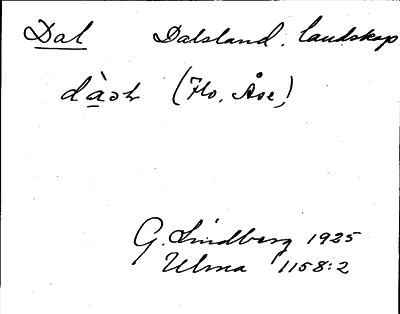 Dal Dalsland, landskap
dàəɫ (Flo, Åse)
G. Lindberg 1925
Ulma 1158:2